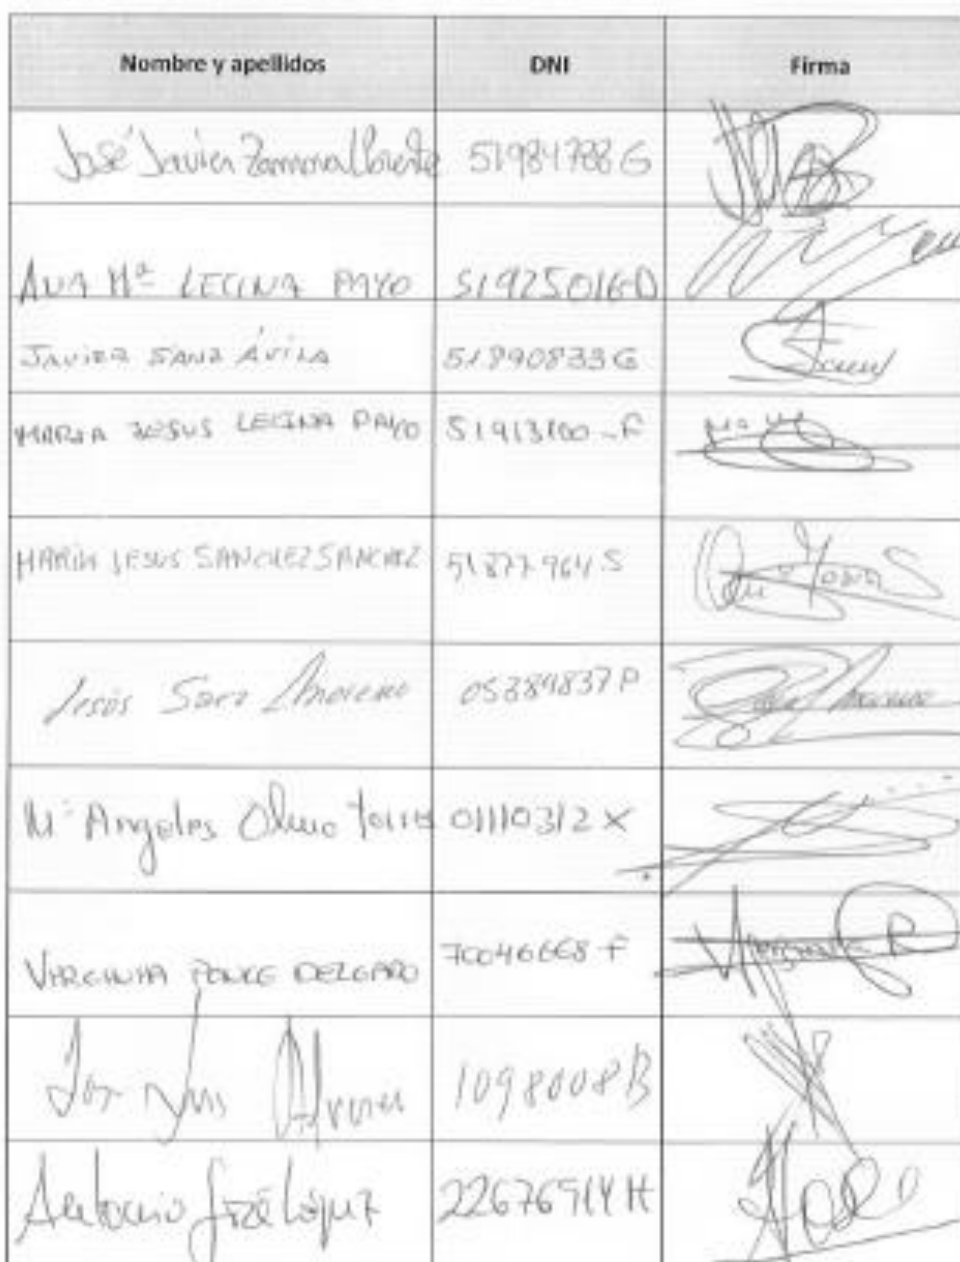 Nombre y apellidos DNI Firma
José Javier Llorente 51984788G
ANA Mª LECINA PAYO 51925016D
JAVIER SANZ ÁVILA 51890833G
MARIA JESUS LECINA PAYO 51913100-F
MARIA JESUS SANCHEZ SANCHEZ 51877964S
Jesús Saez Moreno 05384837P
Mª Angeles Olmo Torres 01110312X
VIRGINIA PONCE DELGADO 70046668-F
Jose Luis 1098008B
Antonio López 22676914H